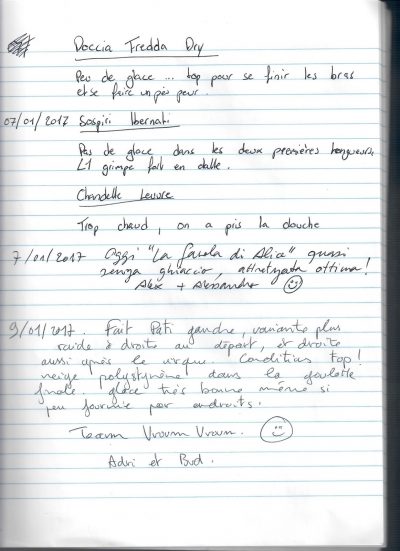 Doccia Fredda Dry
Peu de glace ... top pour se finir les bras
et se faire un peu peur.
07/01/2017 Sospiri Ibernati
Pas de glace dans les deux premières longueurs,
L1 grimpe fort en dalle.
Chandelle Levure
Trop chaud, on a pris la douche
7/01/2017 Oggi "La favola di Alice" quasi
senza ghiaccio, attrezzata ottima!
Alex + Alessandro
9/01/2017. Fait Pati gauche, variante plus
raide à droite au départ, et droite
aussi après le virque. Conditions top!
neige polystyrène dans la goulotte
finale. glace très bonne même si
peu fournie par endroits.
Team Vroum Vroum.
Adri et Bud.